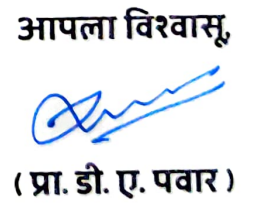 आपला विश्वासू,
( प्रा. डी. ए. पवार )